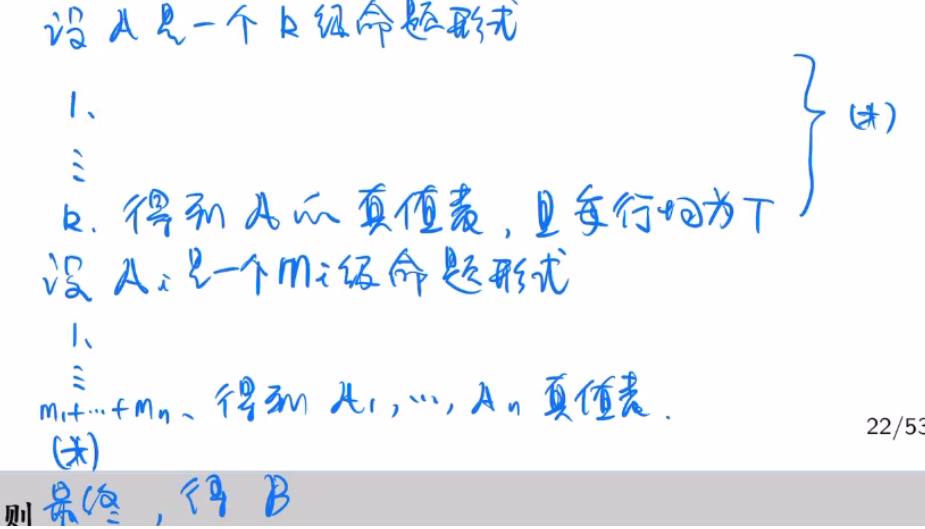 设 A 是一个 k 级命题形式
1、
⋮
k、得到 A 的真值表,且每行均为 T
(*)
设 Ai 是一个 mi 级命题形式
1、
⋮
m1+…+mn、得到 A1,…,An 真值表.
22/53
(*)
则 最终,得 B